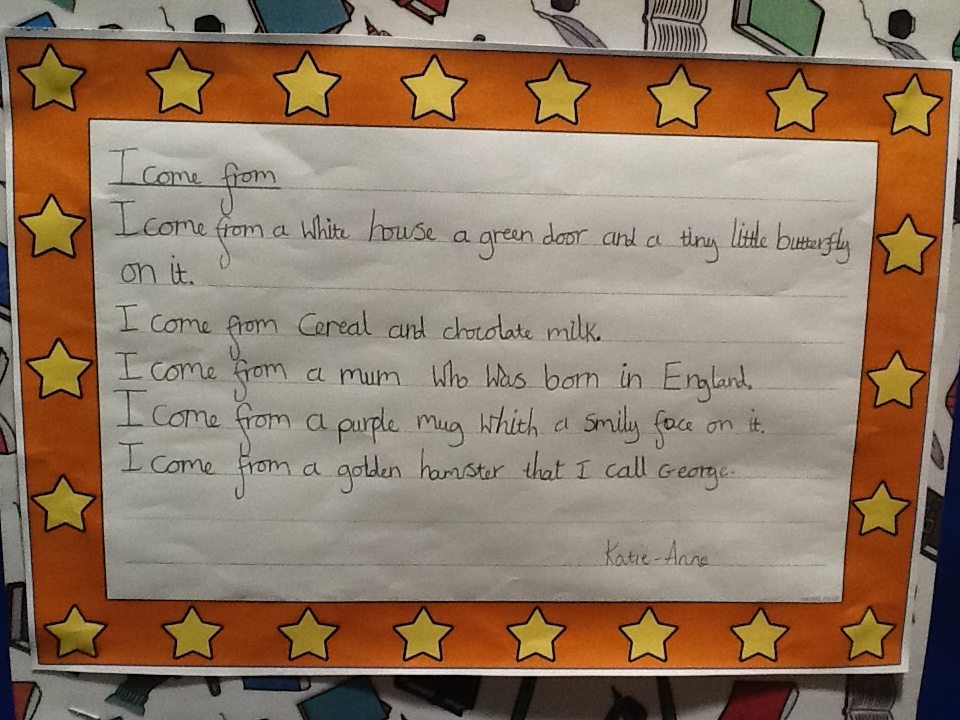 I come from
I come from a white house a green door and a tiny little butterfly
on it.
I come from Cereal and chocolate milk.
I come from a mum who was born in England.
I come from a purple mug whith a smily face on it.
I come from a golden hamster that I call George.
Katie-Anne